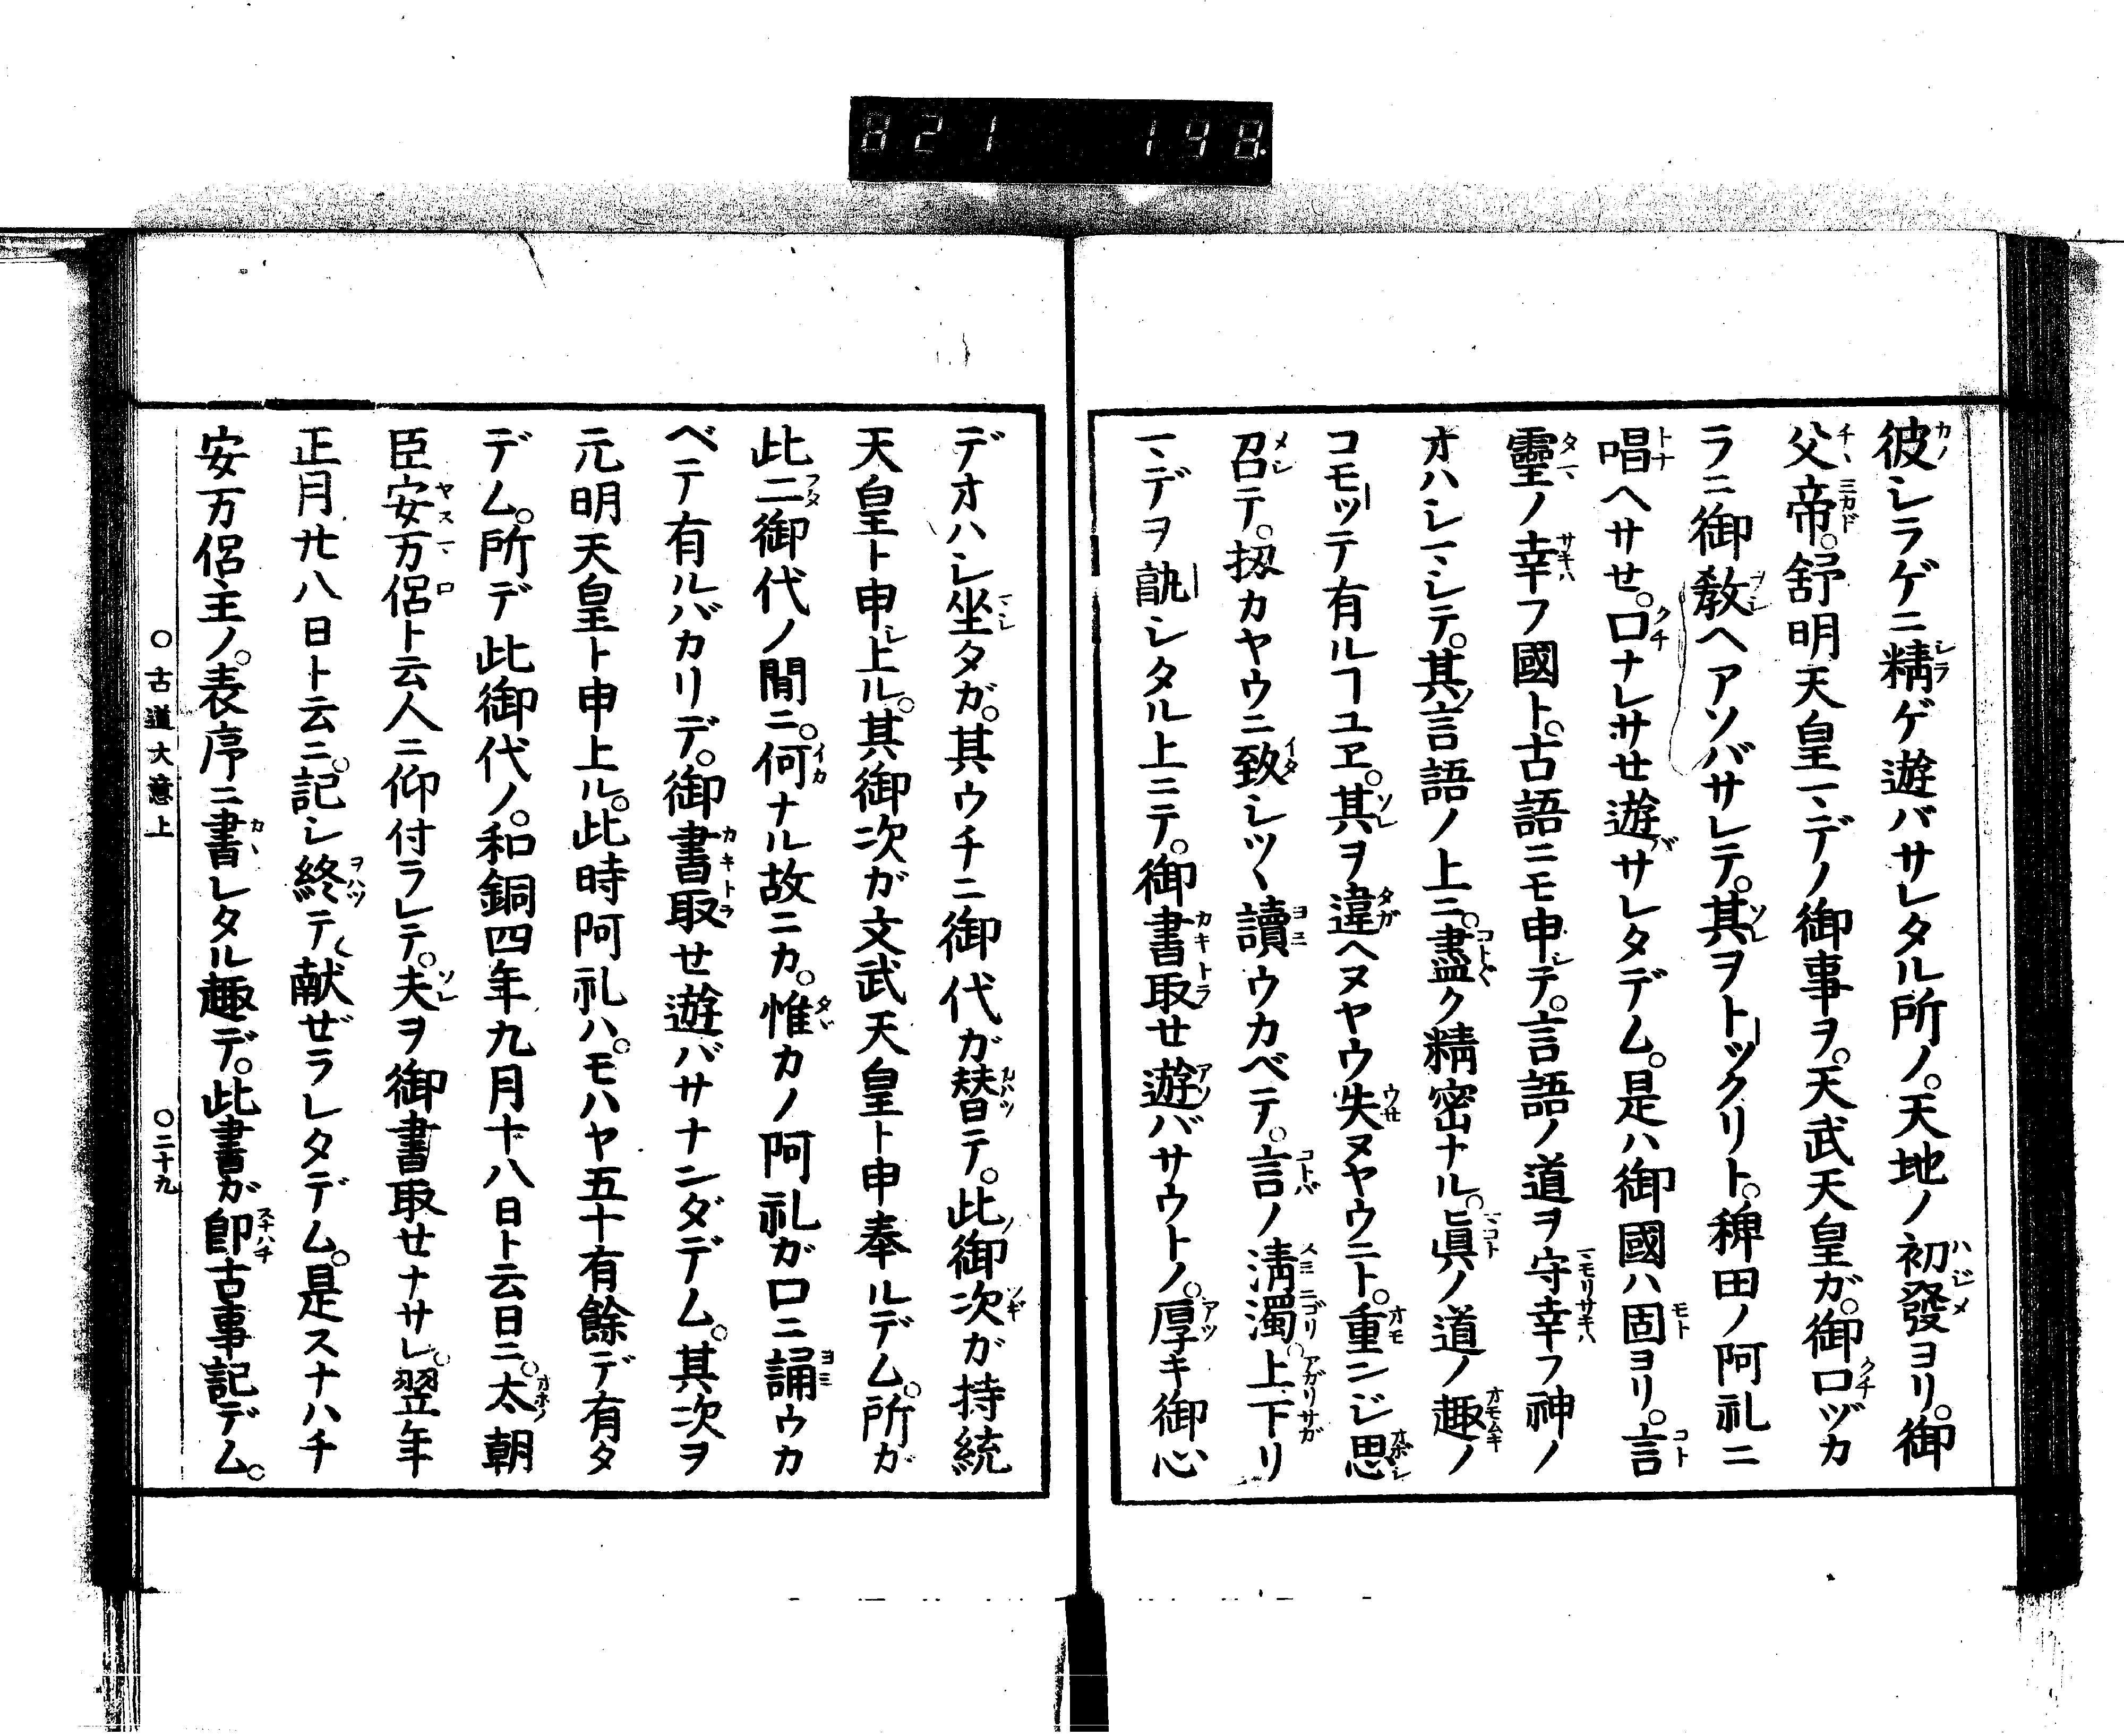 821 148.
彼シラゲニ精ゲ遊バサレタル所ノ。天地ノ初發ヨリ。御
父帝。舒明天皇マデノ御事ヲ。天武天皇ガ。御口ヅカ
ラニ御教ヘアソバサレテ。其ヲトックリト。稗田ノ阿礼ニ
唱ヘサセ。口ナレサセ遊バサレタデム。是ハ御國ハ固ヨリ。言
靈ノ幸フ國ト。古語ニモ申シテ。言語ノ道ヲ守幸フ神ノ
オハシマシテ。其言語ノ上ニ。盡ク精密ナル。眞ノ道ノ趣ノ
コモッテ有ルヿユヱ。其ヲ違ヘヌヤウ失ヌヤウニト。重ンジ思
召テ。扨カヤウニ致シツヽ讀ウカベテ。言ノ淸濁。上下リ
マデヲ訛シタル上ニテ。御書取せ遊バサウトノ。厚キ御心
デオハシ坐タガ。其ウチニ御代ガ替テ。此御次ガ持統
天皇ト申シ上ル。其御次ガ文武天皇ト申奉ルデム。所ガ
此二御代ノ間ニ。何ナル故ニカ。惟カノ阿礼ガ口ニ誦ウカ
ベテ有ルバカリデ。御書取せ遊バサナンダデム。其次ヲ
元明天皇ト申上ル。此時阿礼ハ。モハヤ五十有餘デ有タ
デム。所デ此御代ノ。和銅四年九月十八日ト云日ニ。太朝
臣安万侶ト云人ニ仰付ラレテ。夫ヲ御書取せナサレ。翌年
正月廿八日ト云ニ。記シ終テ献ぜラレタデム。是スナハチ
安万侶主ノ。表序ニ書レタル趣デ。此書ガ卽古事記デム。
○古道大意上 ○二十九